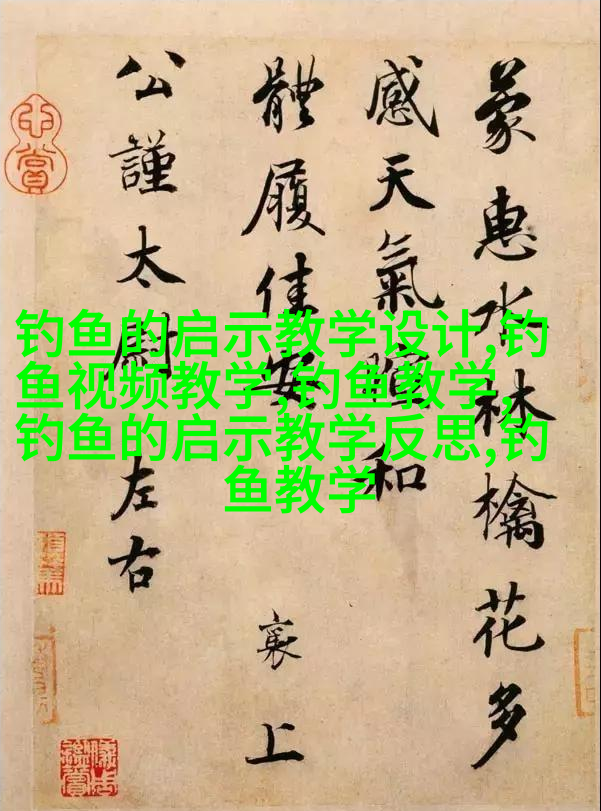 蒙惠水林檎花多
感天氣暄和
體履佳安
襄上
公謹太尉左右
钓鱼的启示教学设计,钓
鱼视频教学,钓鱼教学,
钓鱼的启示教学反思,钓
鱼教学
心賞